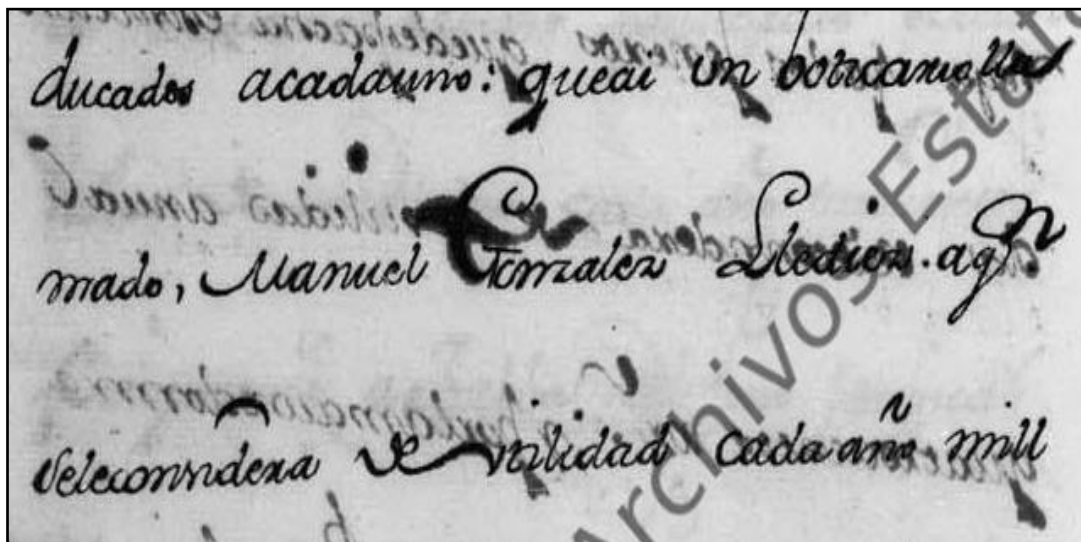 ducados acadauno: queai un boticario lla
mado, Manuel Gonzalez Llediez. aqn
seleconsidera de utilidad cada año mill
Archivos Estat